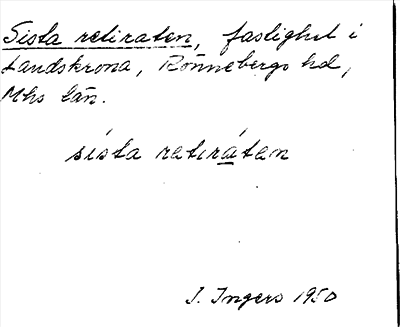 Sista retiraten, fastighet i
Landskrona, Rönnebergs hd,
Mhs län.
sísta retiráten
I. Ingers 1950